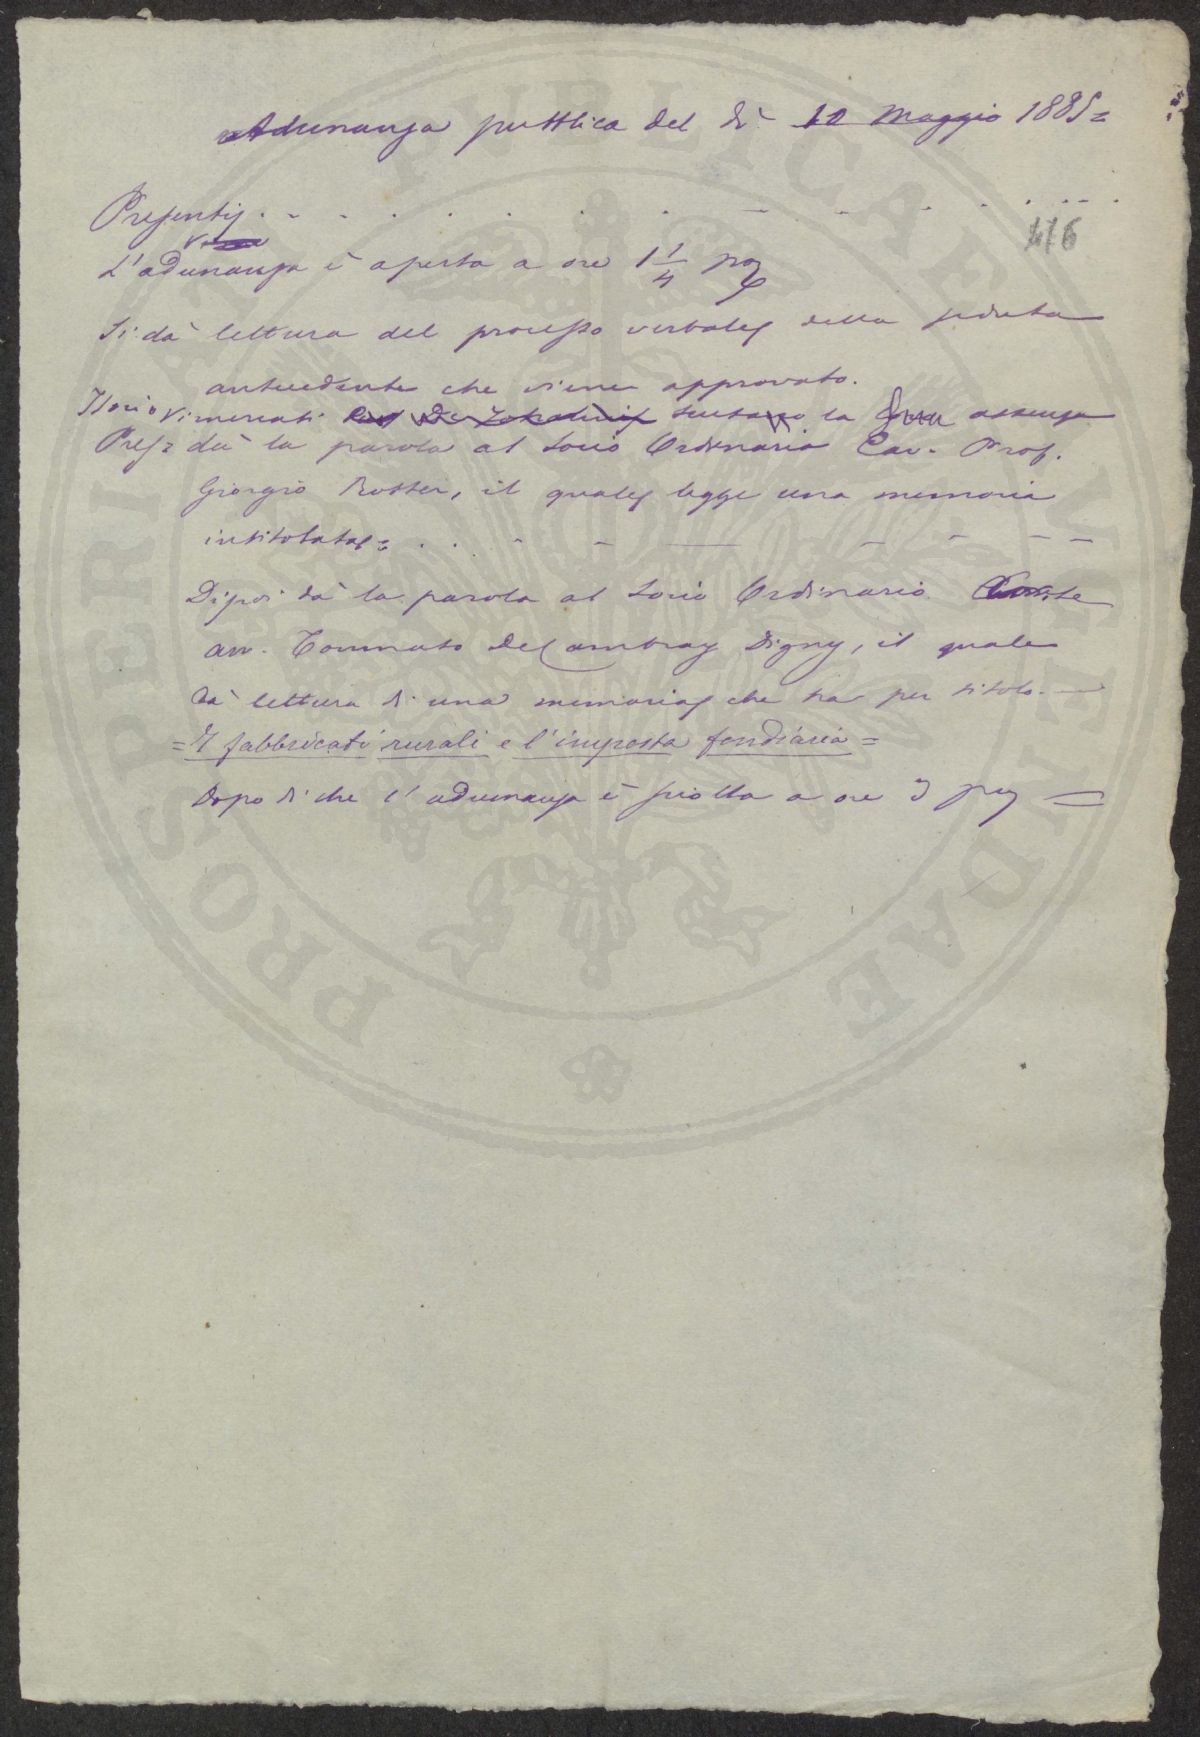 Adunanza pubblica del dì 10 Maggio 1885 =
Presenti . . . . . . . . . . . . . .
416
L'adunanza è aperta a ore 1 1/4 pom
Si dà lettura del processo verbale della seduta
antecedente che viene approvato.
Il socio Vimercati scusa la assenza
Pres = dà la parola al Socio Ordinario Cav. Prof.
Giorgio Roster, il quale legge una memoria
intitolata = . . . . .
Dipoi dà la parola al Socio Ordinario Conte
avv. Tommaso De Cambray Digny, il quale
dà lettura di una memoria che ha per titolo. —
= I fabbricati rurali e l'imposta fondiaria =
dopo di che l'adunanza è sciolta a ore 3 pom =
PUBLICAE
PROSPERITATI
AUGENDAE